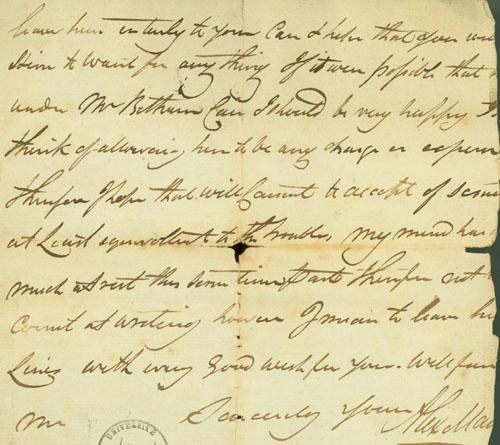 leave him entirely to your Care & hope that you will
him to want for any thing If it were possible that
under Mr Bethune Care I should be very happy
think of allowing him to be any charge or expence
therefore I hope that will Consent to accept of some
at Least equivellent to the troubles, my mind has
much at rest this some time past therefore not
Correct at writing however I mean to leave
Lines with every Good wish for your Wellfare
me Sincerely Yours Alex Mac
UNIVERSITY